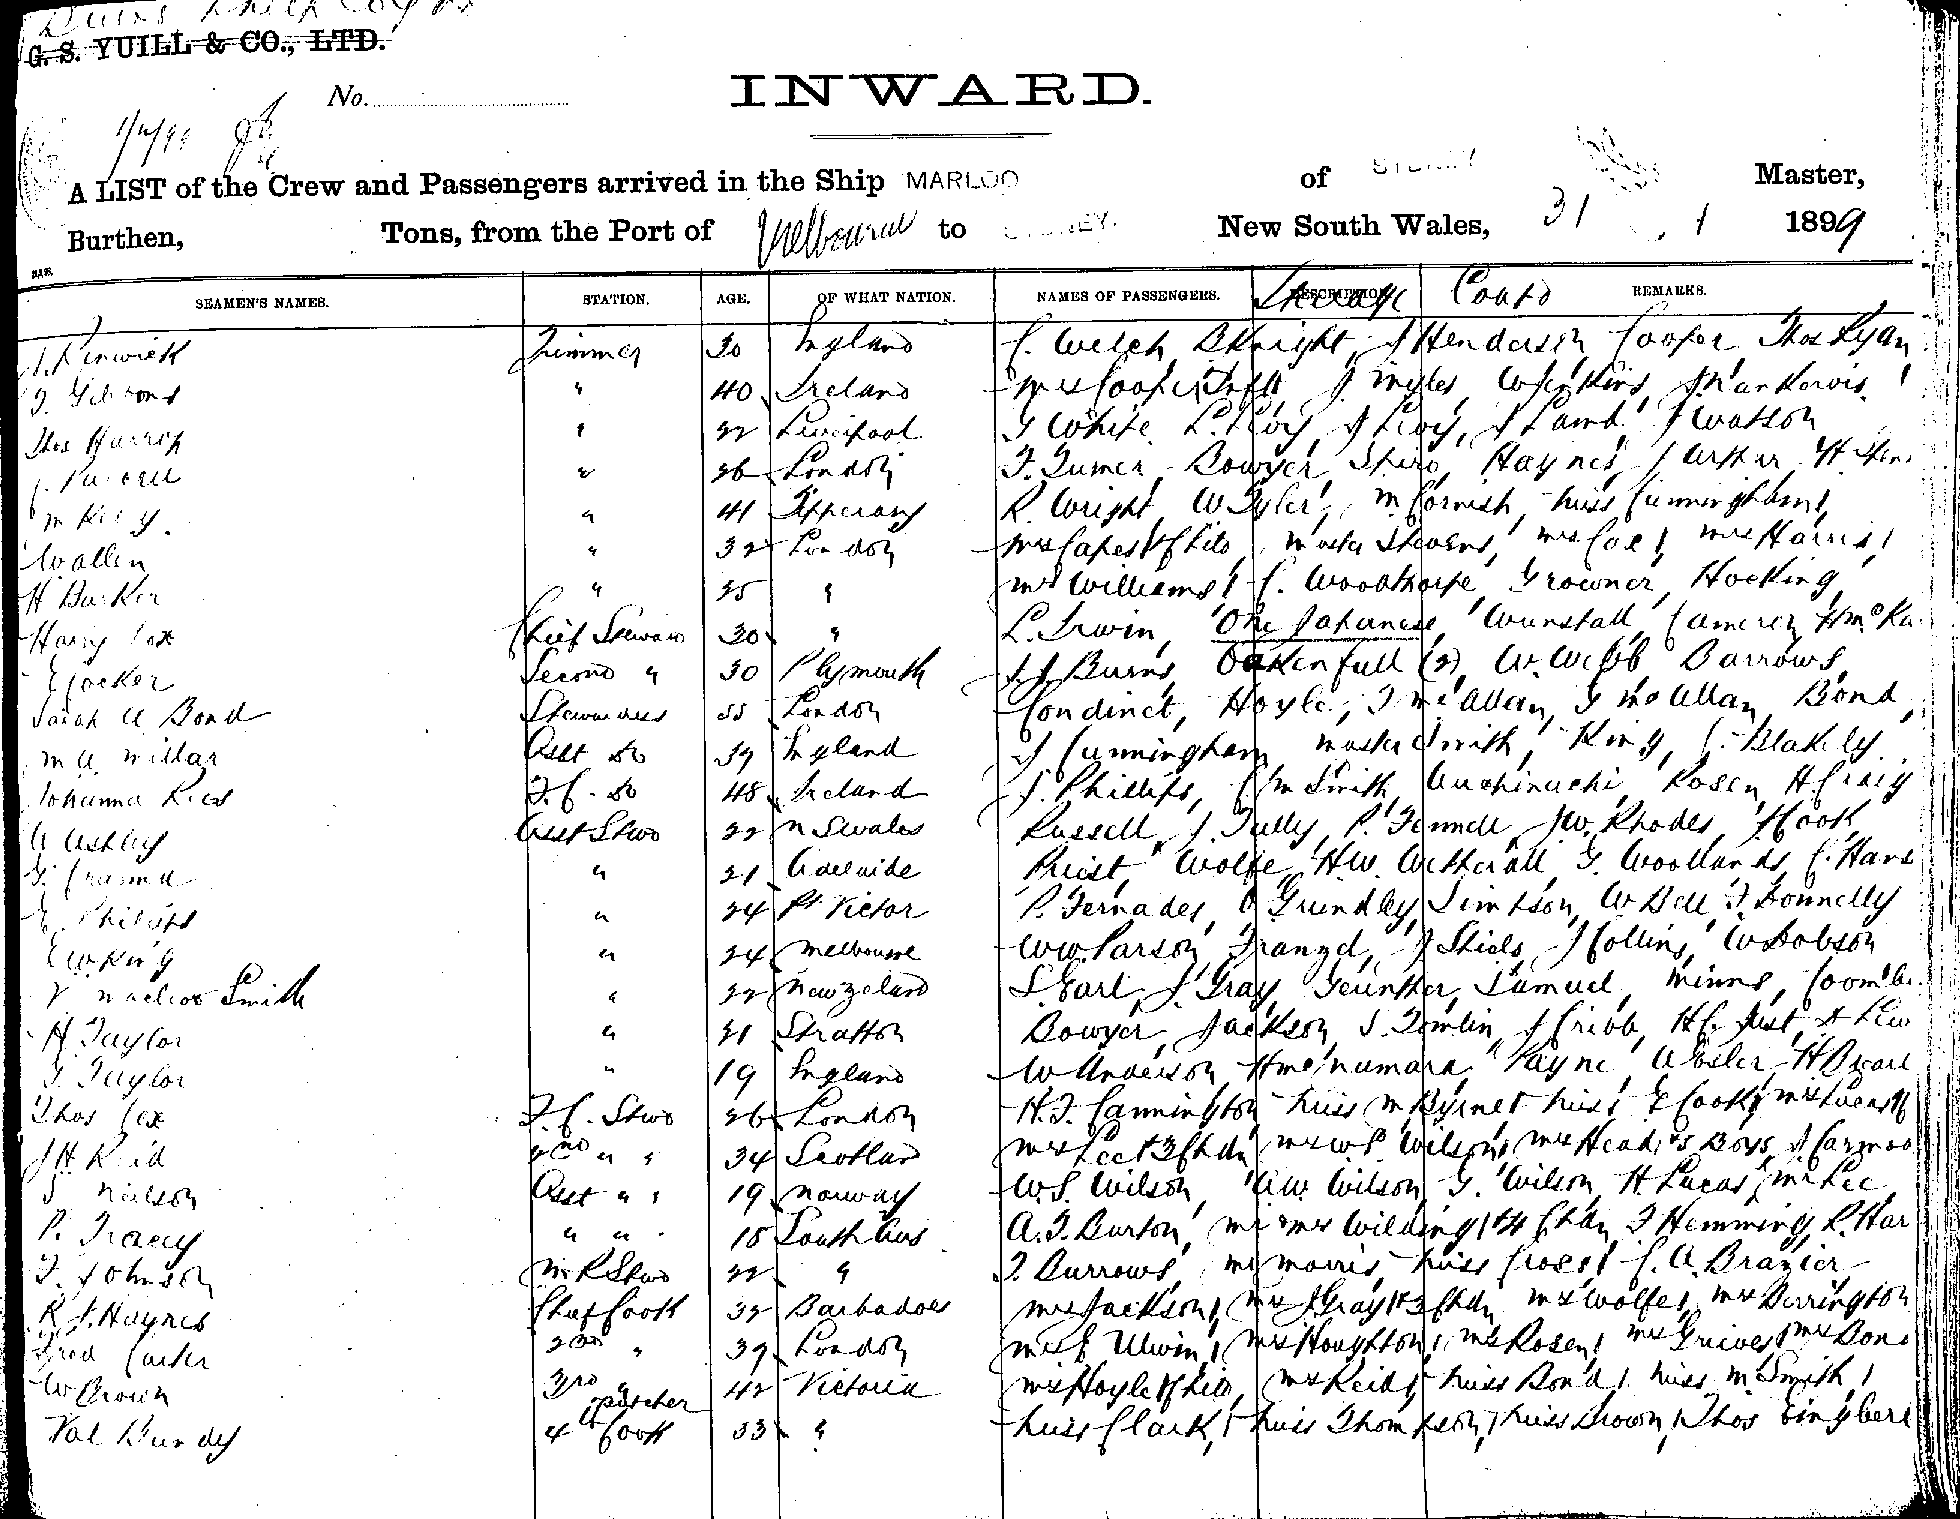 G. S. YUILL & CO., LTD.
No.
INWARD.
A LIST of the Crew and Passengers arrived in the Ship MARLOO of SYDNEY Master,
Burthen, Tons, from the Port of Melbourne to SYDNEY. New South Wales, 31 . 1 1899
SEAMEN'S NAMES. STATION. AGE. OF WHAT NATION. NAMES OF PASSENGERS. DESCRIPTION REMARKS.
Steerage Contd
Renwick Trimmer 30 England C. Welch, B Knight, J Henderson, Cooper, Thos Ryan
Gibbons " 40 Ireland Mrs Cooper & Inft J. Ingles, W Jenkins,
Thos Harrop " 22 Liverpool G White, L. Levy, J Levy, J Lamb, J Watson
" 26 London F. Turner, Bowyer, Haynes, J Arthur
" 41 Tipperary R. Wright, W Tyler, M Cornish, Miss Cunningham
W allen " 32 London Mrs Capes & Child, Master Stevens, Mrs Cox, Mrs Harris
H Barker " 25 " Mrs Williams, C. Woodthorpe, Growner, Hocking,
Harry Cox Chief Steward 30 " L. Irwin, One Japanese, Wunstall, Cameron
E Cocker Second " 30 Plymouth J J Burns, Oakenfull (2), W. Webb, Barrows,
Sarah A Bond Stewardess London Condinct, Hoyle, J McAllan, G McAllan, Bond,
M A Millar Asst Do 39 England J Cunningham, Master Smith, King, C. Blakely
Johanna Ries F. C. Do 48 Ireland J. Phillips, C M Smith, Rosen, H Craig
A Ashley Asst Stwd 22 N S Wales Russell, J. Tully, P. Fennell, J W. Rhodes, J Cook
" 21 Adelaide Priest, Wolfe, H W. Wetherall, G. Woollands,
E. Philipps " 24 Pt Victor P. Fernades, O Grindley, Simpson, W Bell, J Donnelly
E W King " 24 Melbourne W W. Parson, J Shiels, J Collins, W Dobson
Macleod Smith " 22 New Zeland S. Earl, J. Gray, Geunther, Samuel, Minns,
H Taylor " 21 Stratton Bowyer, Jackson, S. Tomlin, J Cribb, H C. Just,
G. Taylor " 19 England W Anderson, H McNamara, Payne,
Thos Cox F. C. Stwd 26 London H. J. Cannington, Miss M Byrne, E Cook,
J H. Reid 2nd " " 34 Scotland Mrs Lee & 3 Chdn, Mrs W S. Wilson, Mrs Head & 2 Boys,
Neilson Asst " " 19 Norway W. S. Wilson, A W. Wilson, G. Wilson, H Lucas, Mr Lee,
P. Tracey " " " 18 South Aus A. J. Burton, Mr Mrs Wilding & 4 Chdn, J Hemming,
J. Johnson M. R Stwd 22 " J. Burrows, Mr Morris, Miss Cross, C. A. Brazier
R J. Haynes Chief Cook 32 Barbadoes Mrs Jackson, Mrs J Gray & 3 Chdn, Mrs Wolfe, Mrs Derrington
Fred Carter 2nd " 39 London Mrs E Ulwin, Mrs Houghton, Mrs Rosen, Mrs Grieves, Mrs Bond
W Brown 3rd " 42 Victoria Mrs Hoyle & Child, Mrs Reid, Miss Bond, Miss M. Smith,
Butcher
Val Bundy 4th Cook 33 " Miss Clark, Miss Thompson, Miss Brown, Thos